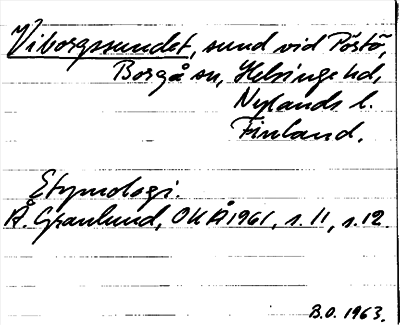 Viborgssundet, sund vid Pörtö,
Borgå sn, Helsinge hd,
Nylands l.
Finland.
Etymologi.
Å. Granlund, OKÅ 1961, s. 11, s. 12.
B.O. 1963.